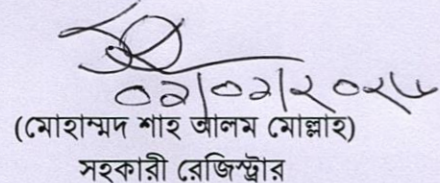 ০২/০২/২০২৬
(মোহাম্মদ শাহ আলম মোল্লাহ)
সহকারী রেজিস্ট্রার